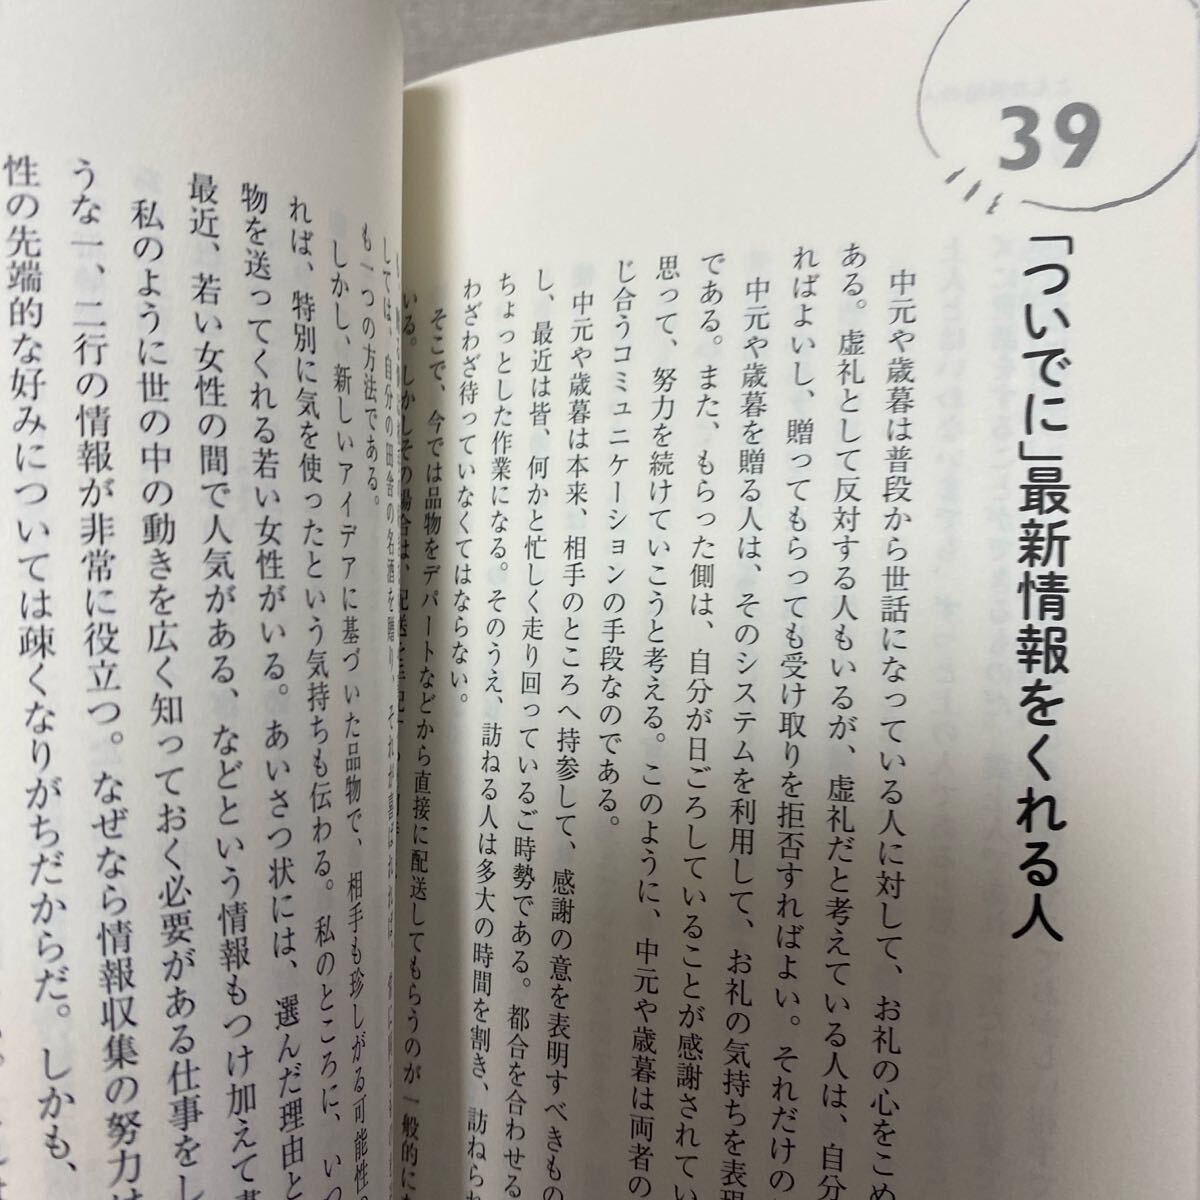 39
「ついでに」最新情報をくれる人
中元や歳暮は普段から世話になっている人に対して、お礼の心をこめ
ある。虚礼として反対する人もいるが、虚礼だと考えている人は、自分
ればよいし、贈ってもらっても受け取りを拒否すればよい。それだけの
中元や歳暮を贈る人は、そのシステムを利用して、お礼の気持ちを表現
である。また、もらった側は、自分が日ごろしていることが感謝されてい
思って、努力を続けていこうと考える。このように、中元や歳暮は両者の
じ合うコミュニケーションの手段なのである。
中元や歳暮は本来、相手のところへ持参して、感謝の意を表明すべきもの
し、最近は皆、何かと忙しく走り回っているご時勢である。都合を合わせる
ちょっとした作業になる。そのうえ、訪ねる人は多大の時間を割き、訪ねられ
わざわざ待っていなくてはならない。
そこで、今では品物をデパートなどから直接に配送してもらうのが一般的にな
いる。しかしその場合は、配送を手配
しては、自分の田舎の名酒を贈り、それが喜ばれれば、
も一つの方法である。
しかし、新しいアイデアに基づいた品物で、相手も珍しがる可能性
れば、特別に気を使ったという気持ちも伝わる。私のところに、いつ
物を送ってくれる若い女性がいる。あいさつ状には、選んだ理由と
最近、若い女性の間で人気がある、などという情報もつけ加えて
私のように世の中の動きを広く知っておく必要がある仕事をし
うな一、二行の情報が非常に役立つ。なぜなら情報収集の努力は
性の先端的な好みについては疎くなりがちだからだ。しかも、